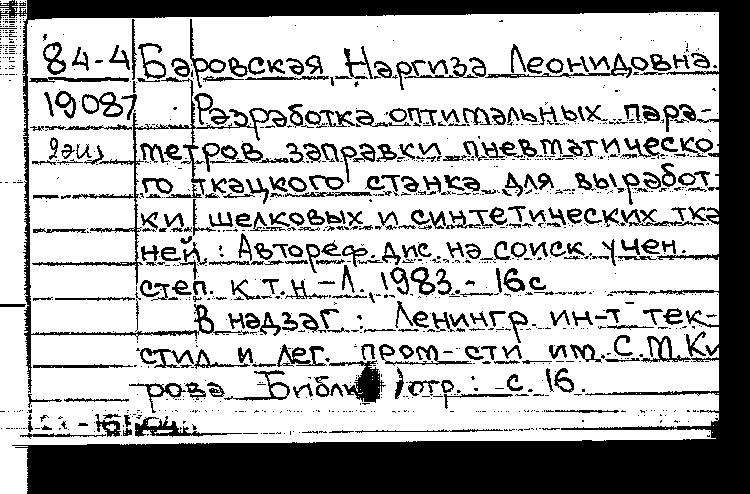 84-4 Баровская, Наргиза Леонидовна.
19087 Разработка оптимальных пара-
метров заправки пневматическо-
го ткацкого станка для выработ-
ки шелковых и синтетических тка
ней : Автореф. дис. на соиск. учен.
степ. к.т.н - Л., 1983. - 16с
В надзаг : Ленингр. ин-т тек-
стил. и лег. пром-сти им. С.М.Ки
рова. Библиогр. : с. 16.